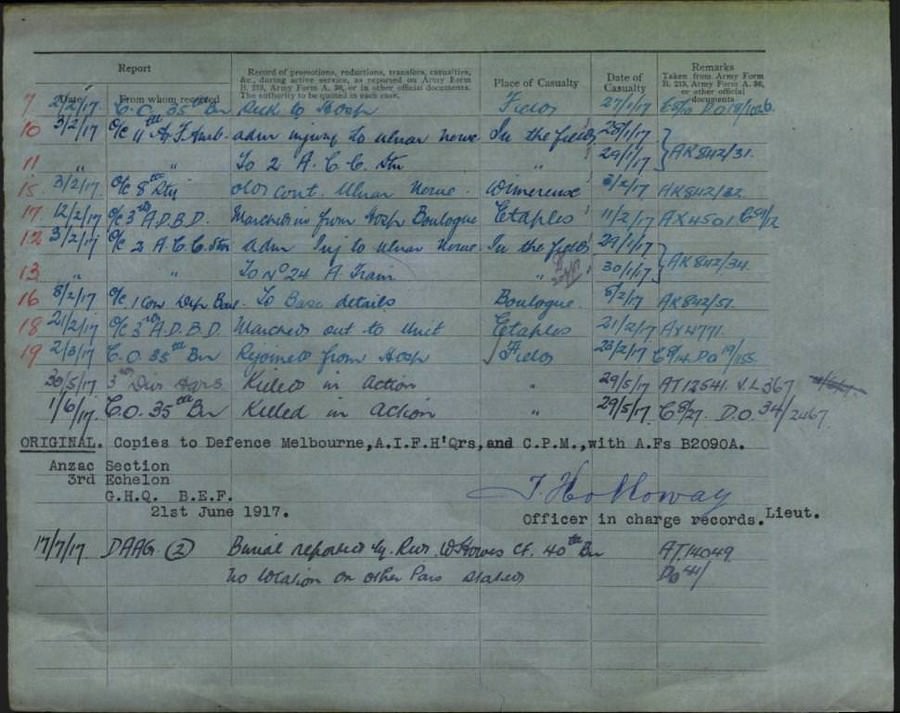 Report
Record of promotions, reductions, transfers, casualties, &c., during active service, as reported on Army Form B. 213, Army Form A. 36, or in other official documents. The authority to be quoted in each case.
Place of Casualty
Date of Casualty
Remarks Taken from Army Form B. 213, Army Form A. 36, or other official documents
Date From whom received
7 2/2/17 C.O. 35th Bn Sick to Hosp Field 27/1/17
10 3/2/17 O/C 11th A.F.Amb. adm injury to ulnar nerve In the field 25/1/17
11 " " To 2 A.C.C. Stn " 29/1/17 AK842/31.
15 3/2/17 O/C 8th Sty cont. Ulnar Nerve. Wimereux 3/2/17 AK842/32.
17 12/2/17 O/C 3rd A.D.B.D. Marched in from Hosp Boulogne Etaples 11/2/17 AX4501
12 3/2/17 O/C 2 A.C.C. Stn adm Inj to ulnar Nerve. In the field 29/1/17
13 " " To No 24 A Train " 30/1/17 AK842/34.
16 8/2/17 O/C 1 Con Dep Boul. To Base details Boulogne 8/2/17 AK842/51.
18 21/2/17 O/C 3rd A.D.B.D. Marched out to Unit Etaples 21/2/17 AX4771.
19 2/3/17 C.O. 35th Bn Rejoined from Hosp Field 23/2/17 DO 19/155.
30/5/17 3rd Div Hqrs Killed in action " 29/5/17 AT12541. V.L367
1/6/17. C.O. 35th Bn Killed in action " 29/5/17. D.O. 34/2467
ORIGINAL. Copies to Defence Melbourne,A.I.F.H'Qrs,and C.P.M.,with A.Fs B2090A.
Anzac Section
3rd Echelon
G.H.Q. B.E.F.
21st June 1917.
T. Holloway
Officer in charge records. Lieut.
17/7/17 DAAG (2) Burial reported by Rev. W Howes CF. 40th Bn AT14049
No location or other Pars stated DO 41/